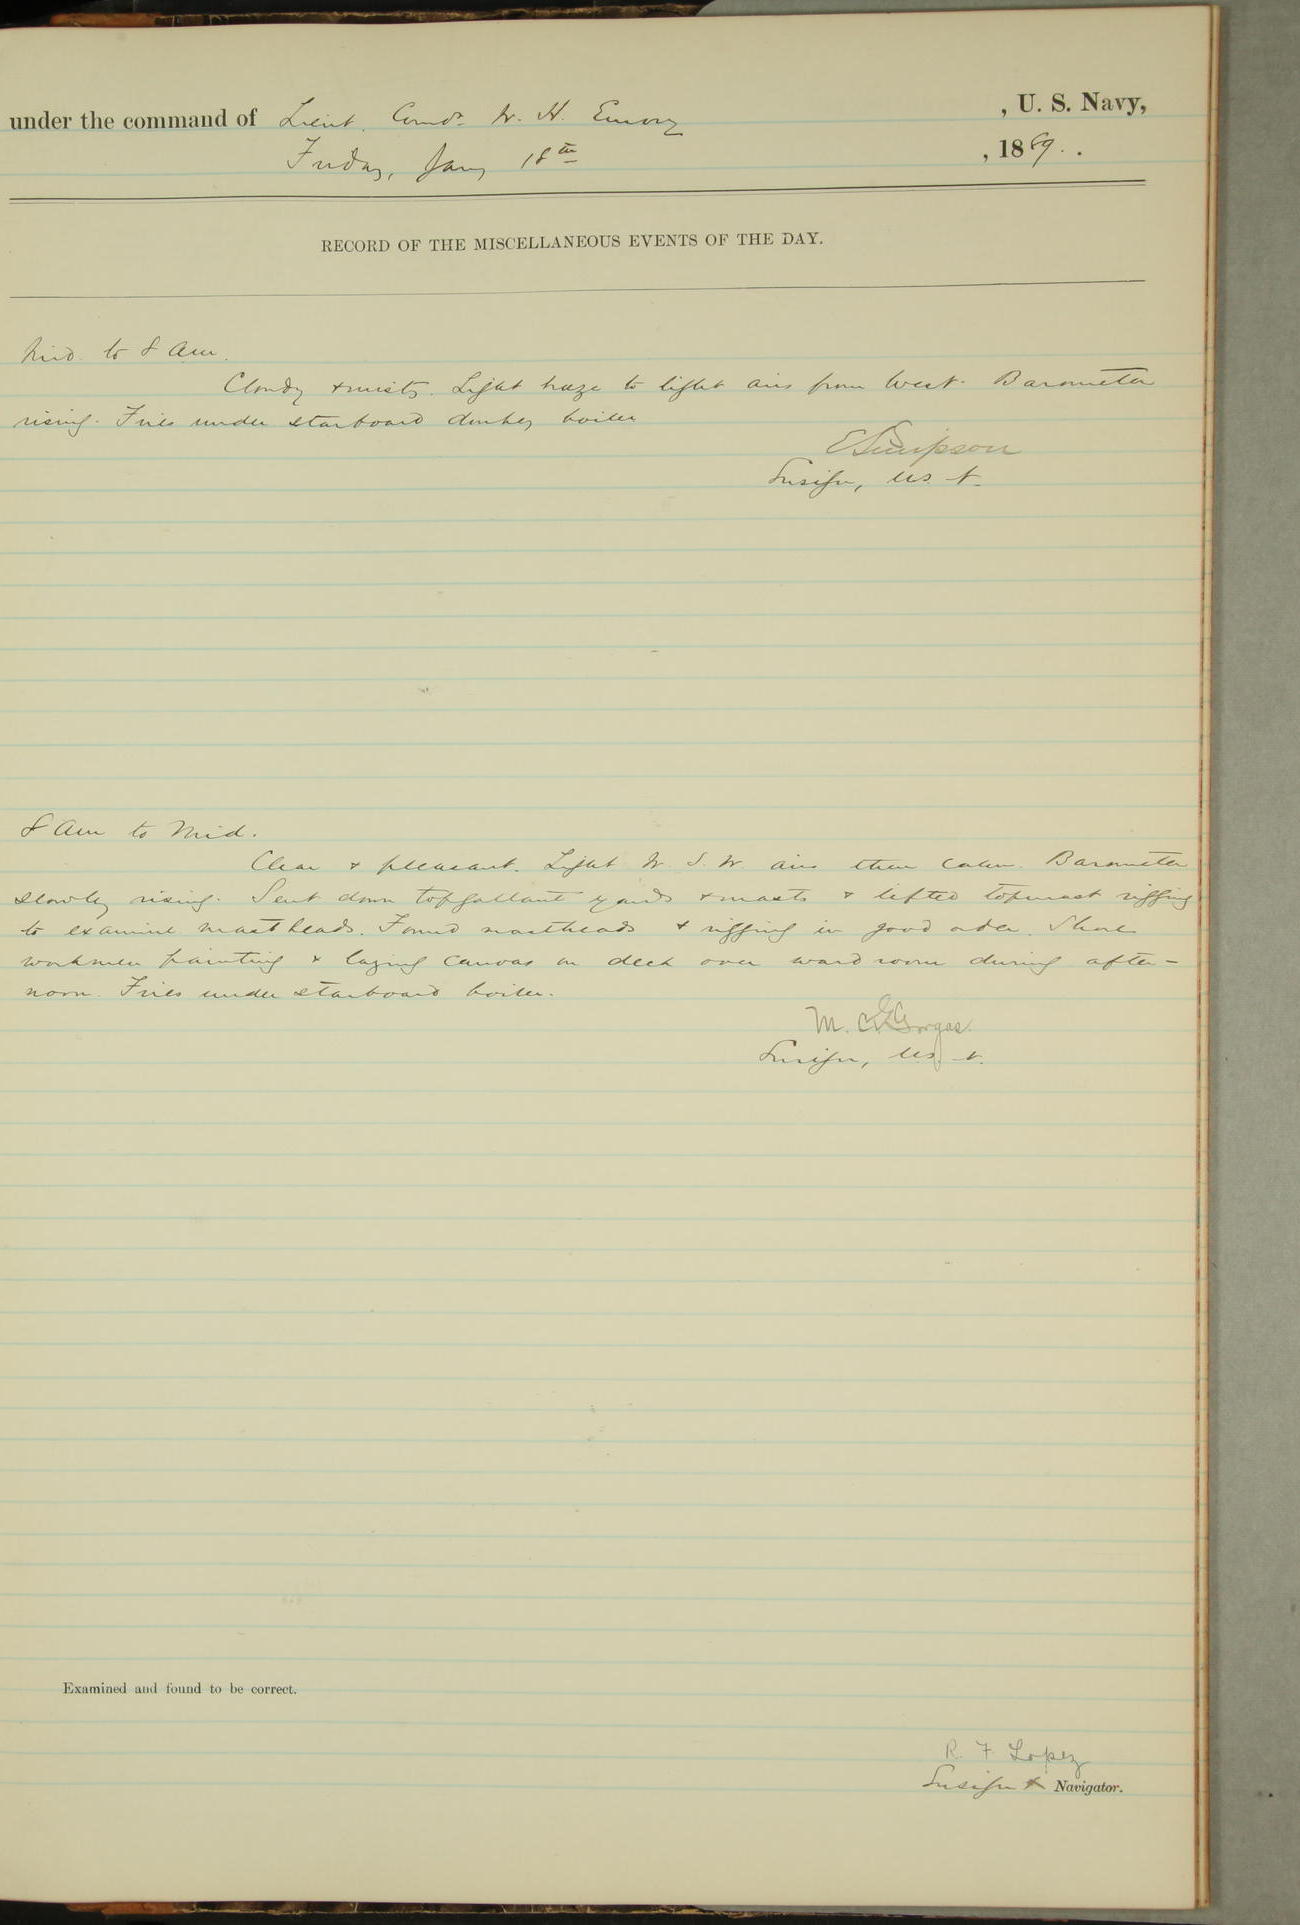 under the command of Lieut. Comdr. W. H. Emory , U. S. Navy,
Friday, Jany 18th , 1889.
RECORD OF THE MISCELLANEOUS EVENTS OF THE DAY.
Mid. to 8 Am.
Cloudy & misty. Light haze to light airs from West. Barometer
rising. Fires under starboard donkey boiler
E Simpson
Ensign, U.S. N.
8 Am to Mid.
Clear & pleasant. Light W. S. W. airs then calm. Barometer
slowly rising. Sent down topgallant yards & masts & lifted topmast rigging
to examine mastheads. Found mastheads & rigging in good order. Shore
workmen painting & laying canvas on deck over ward room during after-
noon. Fires under starboard boiler.
M. C. Gorgas.
Ensign, U.S. N.
Examined and found to be correct.
R. F. Lopez
Ensign & Navigator.